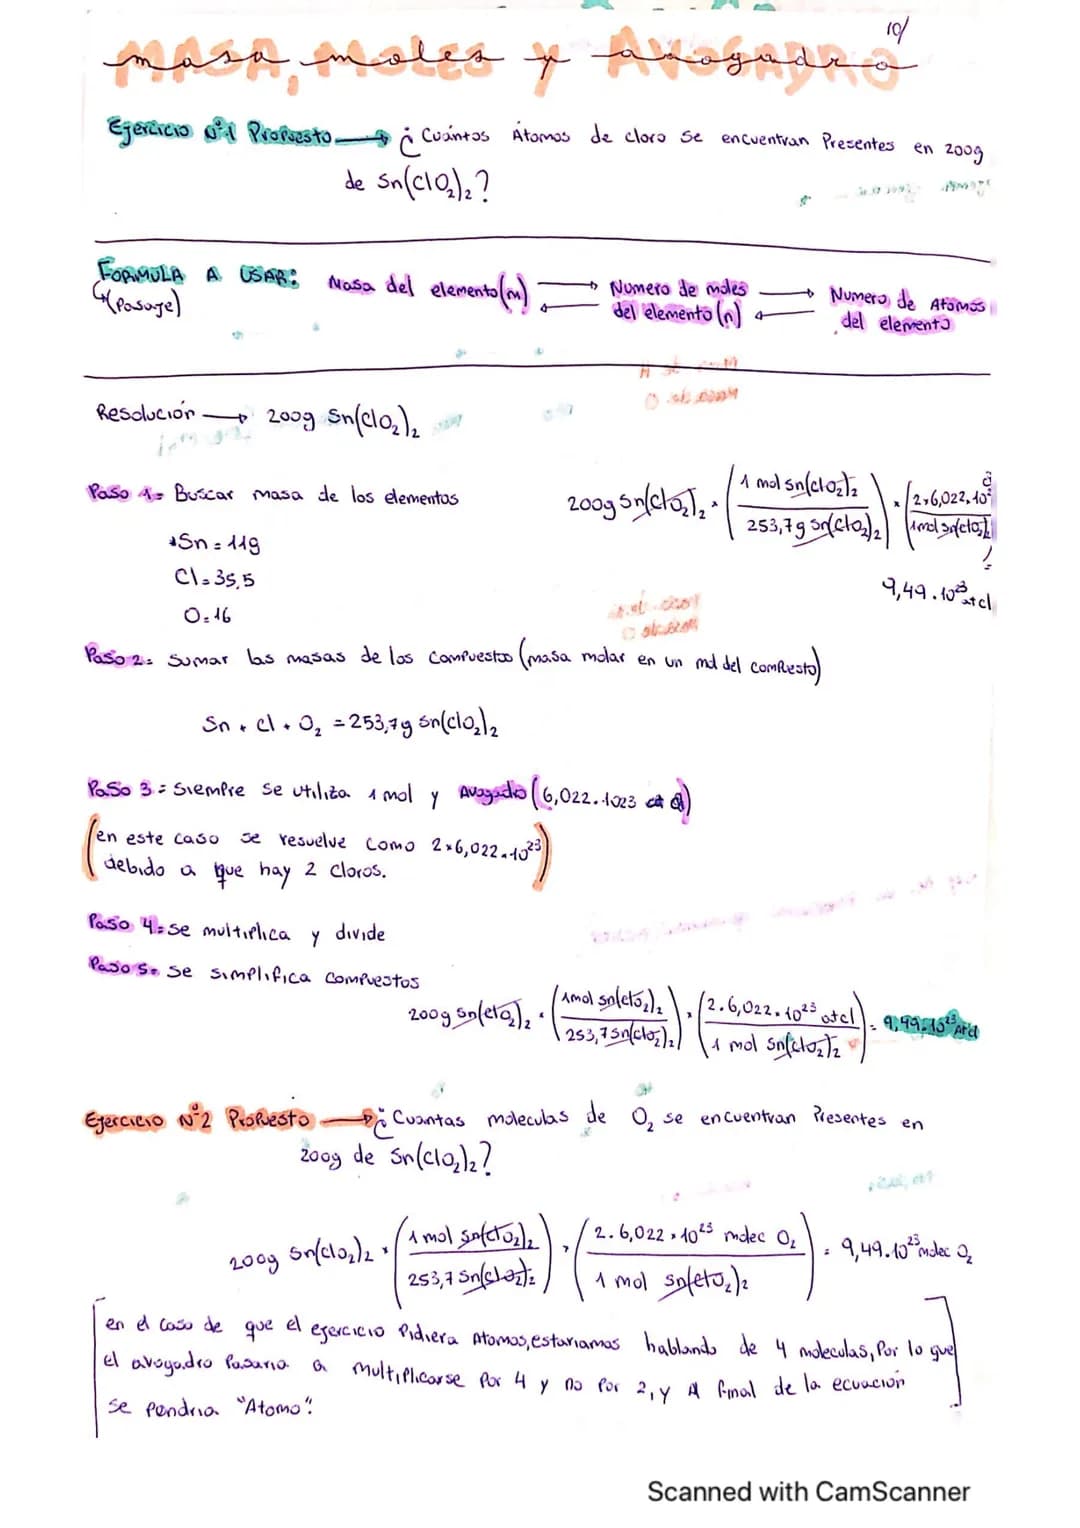 10/
masa, moles y avogadro
Ejercicio N°1 Propuesto → ¿Cuántos Átomos de cloro se encuentran Presentes en 200g
de Sn(ClO₂)₂?
FORMULA A USAR: Masa del elemento(m) ⇄ Numero de moles del elemento (n) ⇄ Numero de Atomos del elemento
↳(Pasaje)
Resolución → 200g Sn(ClO₂)₂
Paso 1= Buscar masa de los elementos
200g Sn(ClO₂)₂ · (1 mol Sn(ClO₂)₂ / 253,7g Sn(ClO₂)₂) × (2×6,022.10 / 1mol Sn(ClO₂)₂)
Sn = 119
Cl = 35,5
9,49.10²³ at cl
O = 16
Paso 2= Sumar las masas de los Compuestos (masa molar en un mol del compuesto)
Sn + Cl + O₂ = 253,7g Sn(ClO₂)₂
Paso 3 = Siempre se utiliza 1 mol y Avogadro (6,022.1023 at cl)
(en este caso se resuelve como 2×6,022.10²³
debido a que hay 2 Cloros.)
Paso 4= se multiplica y divide
Paso 5= Se simplifica Compuestos
200g Sn(ClO₂)₂ · (1mol Sn(ClO₂)₂ / 253,7 Sn(ClO₂)₂) · (2.6,022.10²³ at cl / 1 mol Sn(ClO₂)₂) = 9,49.10²³ At cl
Ejercicio N°2 Propuesto → ¿Cuantas moleculas de O₂ se encuentran Presentes en
200g de Sn(ClO₂)₂?
200g Sn(ClO₂)₂ · (1 mol Sn(ClO₂)₂ / 253,7 Sn(ClO₂)₂) · (2.6,022.10²³ molec O₂ / 1 mol Sn(ClO₂)₂) = 9,49.10²³ molec O₂
[en el caso de que el ejercicio Pidiera Atomos, estariamos hablando de 4 moleculas, Por lo que
el avogadro Pasaria a multiplicarse Por 4 y no Por 2, y Al final de la ecuación
se Pondria "Atomo".]
Scanned with CamScanner